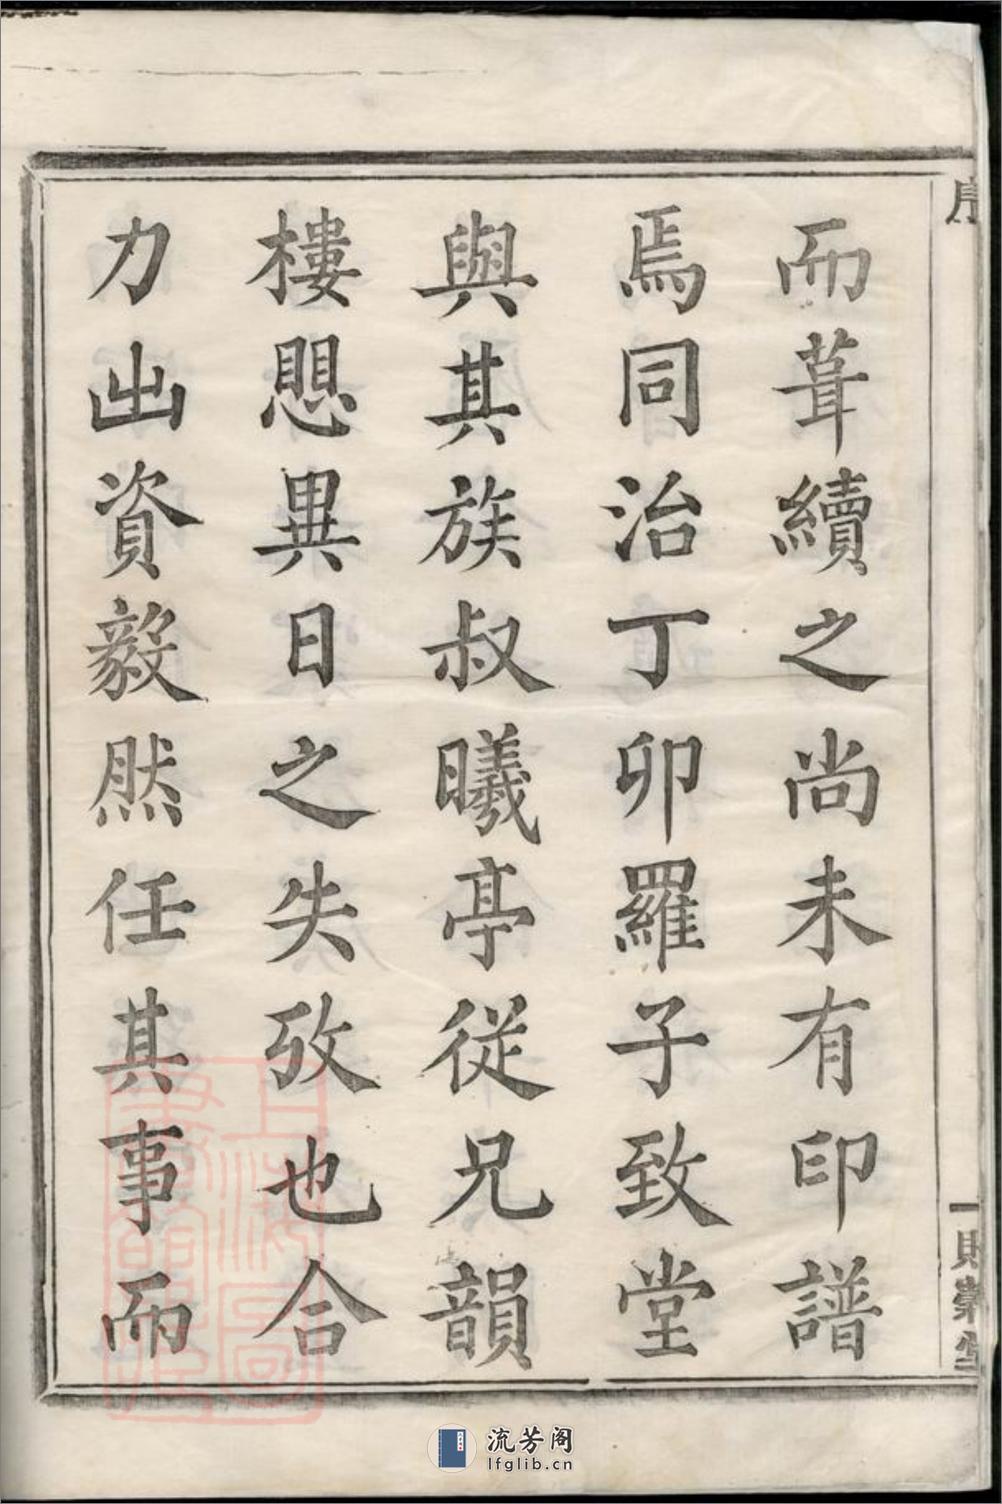 而葺續之尚未有印譜
焉同治丁卯羅子致堂
與其族叔曦亭從兄韻
樓愳異日之失攷也合
力出資毅然任其事而
序
一
流芳阁
lfglib.cn